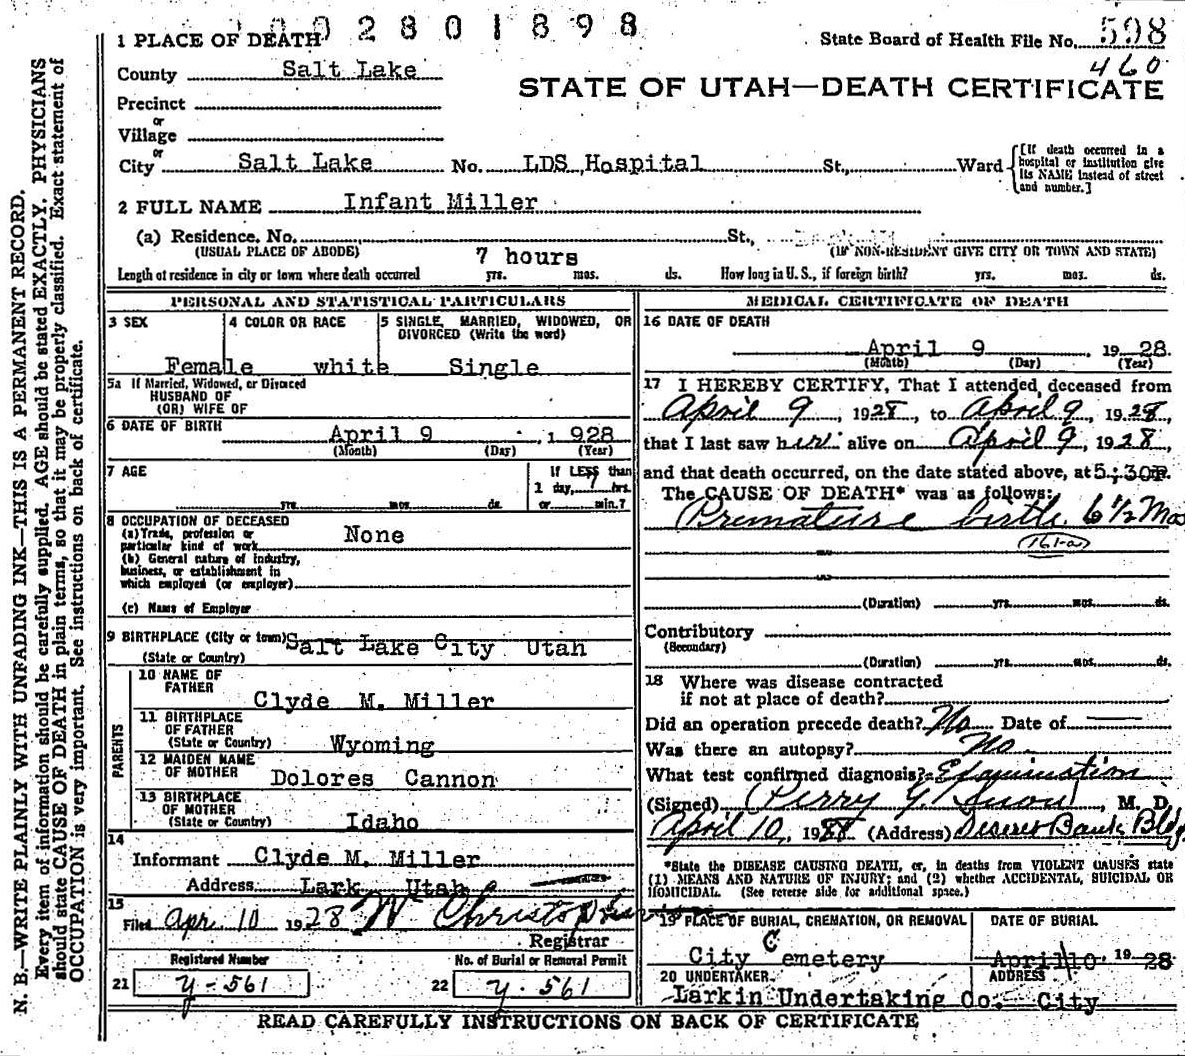 002801898
1 PLACE OF DEATH
State Board of Health File No. 598
460
County Salt Lake
STATE OF UTAH—DEATH CERTIFICATE
Precinct
or
Village
or
City Salt Lake No. LDS Hospital St., Ward
[If death occurred in a hospital or institution give its NAME instead of street and number.]
2 FULL NAME Infant Miller
(a) Residence. No. St.,
(USUAL PLACE OF ABODE) (IF NON-RESIDENT GIVE CITY OR TOWN AND STATE)
7 hours
Length of residence in city or town where death occurred yrs. mos. ds. How long in U. S., if foreign birth? yrs. mos. ds.
PERSONAL AND STATISTICAL PARTICULARS
3 SEX 4 COLOR OR RACE 5 SINGLE, MARRIED, WIDOWED, OR
DIVORCED (Write the word)
Female white Single
5a If Married, Widowed, or Divorced
HUSBAND OF
(OR) WIFE OF
6 DATE OF BIRTH April 9, 1928
(Month) (Day) (Year)
7 AGE If LESS than
1 day, 7 hrs.
yrs. mos. ds. or min.?
8 OCCUPATION OF DECEASED
(a) Trade, profession or
particular kind of work None
(b) General nature of industry,
business, or establishment in
which employed (or employer)
(c) Name of Employer
9 BIRTHPLACE (City or town) Salt Lake City Utah
(State or Country)
PARENTS
10 NAME OF
FATHER Clyde M. Miller
11 BIRTHPLACE
OF FATHER
(State or Country) Wyoming
12 MAIDEN NAME
OF MOTHER Dolores Cannon
13 BIRTHPLACE
OF MOTHER
(State or Country) Idaho
14
Informant Clyde M. Miller
Address Lark Utah
15
Filed Apr. 10 1928 W Christopherson
Registrar
Registered Number No. of Burial or Removal Permit
21 y-561 22 y-561
MEDICAL CERTIFICATE OF DEATH
16 DATE OF DEATH
April 9 1928
(Month) (Day) (Year)
17 I HEREBY CERTIFY, That I attended deceased from
April 9, 1928, to April 9, 1928,
that I last saw her alive on April 9, 1928,
and that death occurred, on the date stated above, at 5:30P.
The CAUSE OF DEATH* was as follows:
Premature birth. 6 1/2 Mos
161-a
(Duration) yrs. mos. ds.
Contributory
(Secondary)
(Duration) yrs. mos. ds.
18 Where was disease contracted
if not at place of death?
Did an operation precede death? No Date of
Was there an autopsy? No.
What test confirmed diagnosis? Examination
(Signed) Perry G. Snow, M. D.
April 10, 1928 (Address) Deseret Bank Bldg.
*State the DISEASE CAUSING DEATH, or, in deaths from VIOLENT CAUSES state
(1) MEANS AND NATURE OF INJURY; and (2) whether ACCIDENTAL, SUICIDAL OR
HOMICIDAL. (See reverse side for additional space.)
19 PLACE OF BURIAL, CREMATION, OR REMOVAL DATE OF BURIAL
City Cemetery April 10 1928
20 UNDERTAKER ADDRESS
Larkin Undertaking Co. City
READ CAREFULLY INSTRUCTIONS ON BACK OF CERTIFICATE
N. B.—WRITE PLAINLY WITH UNFADING INK—THIS IS A PERMANENT RECORD.
Every item of information should be carefully supplied. AGE should be stated EXACTLY. PHYSICIANS
should state CAUSE OF DEATH in plain terms, so that it may be properly classified. Exact statement of
OCCUPATION is very important. See instructions on back of certificate.